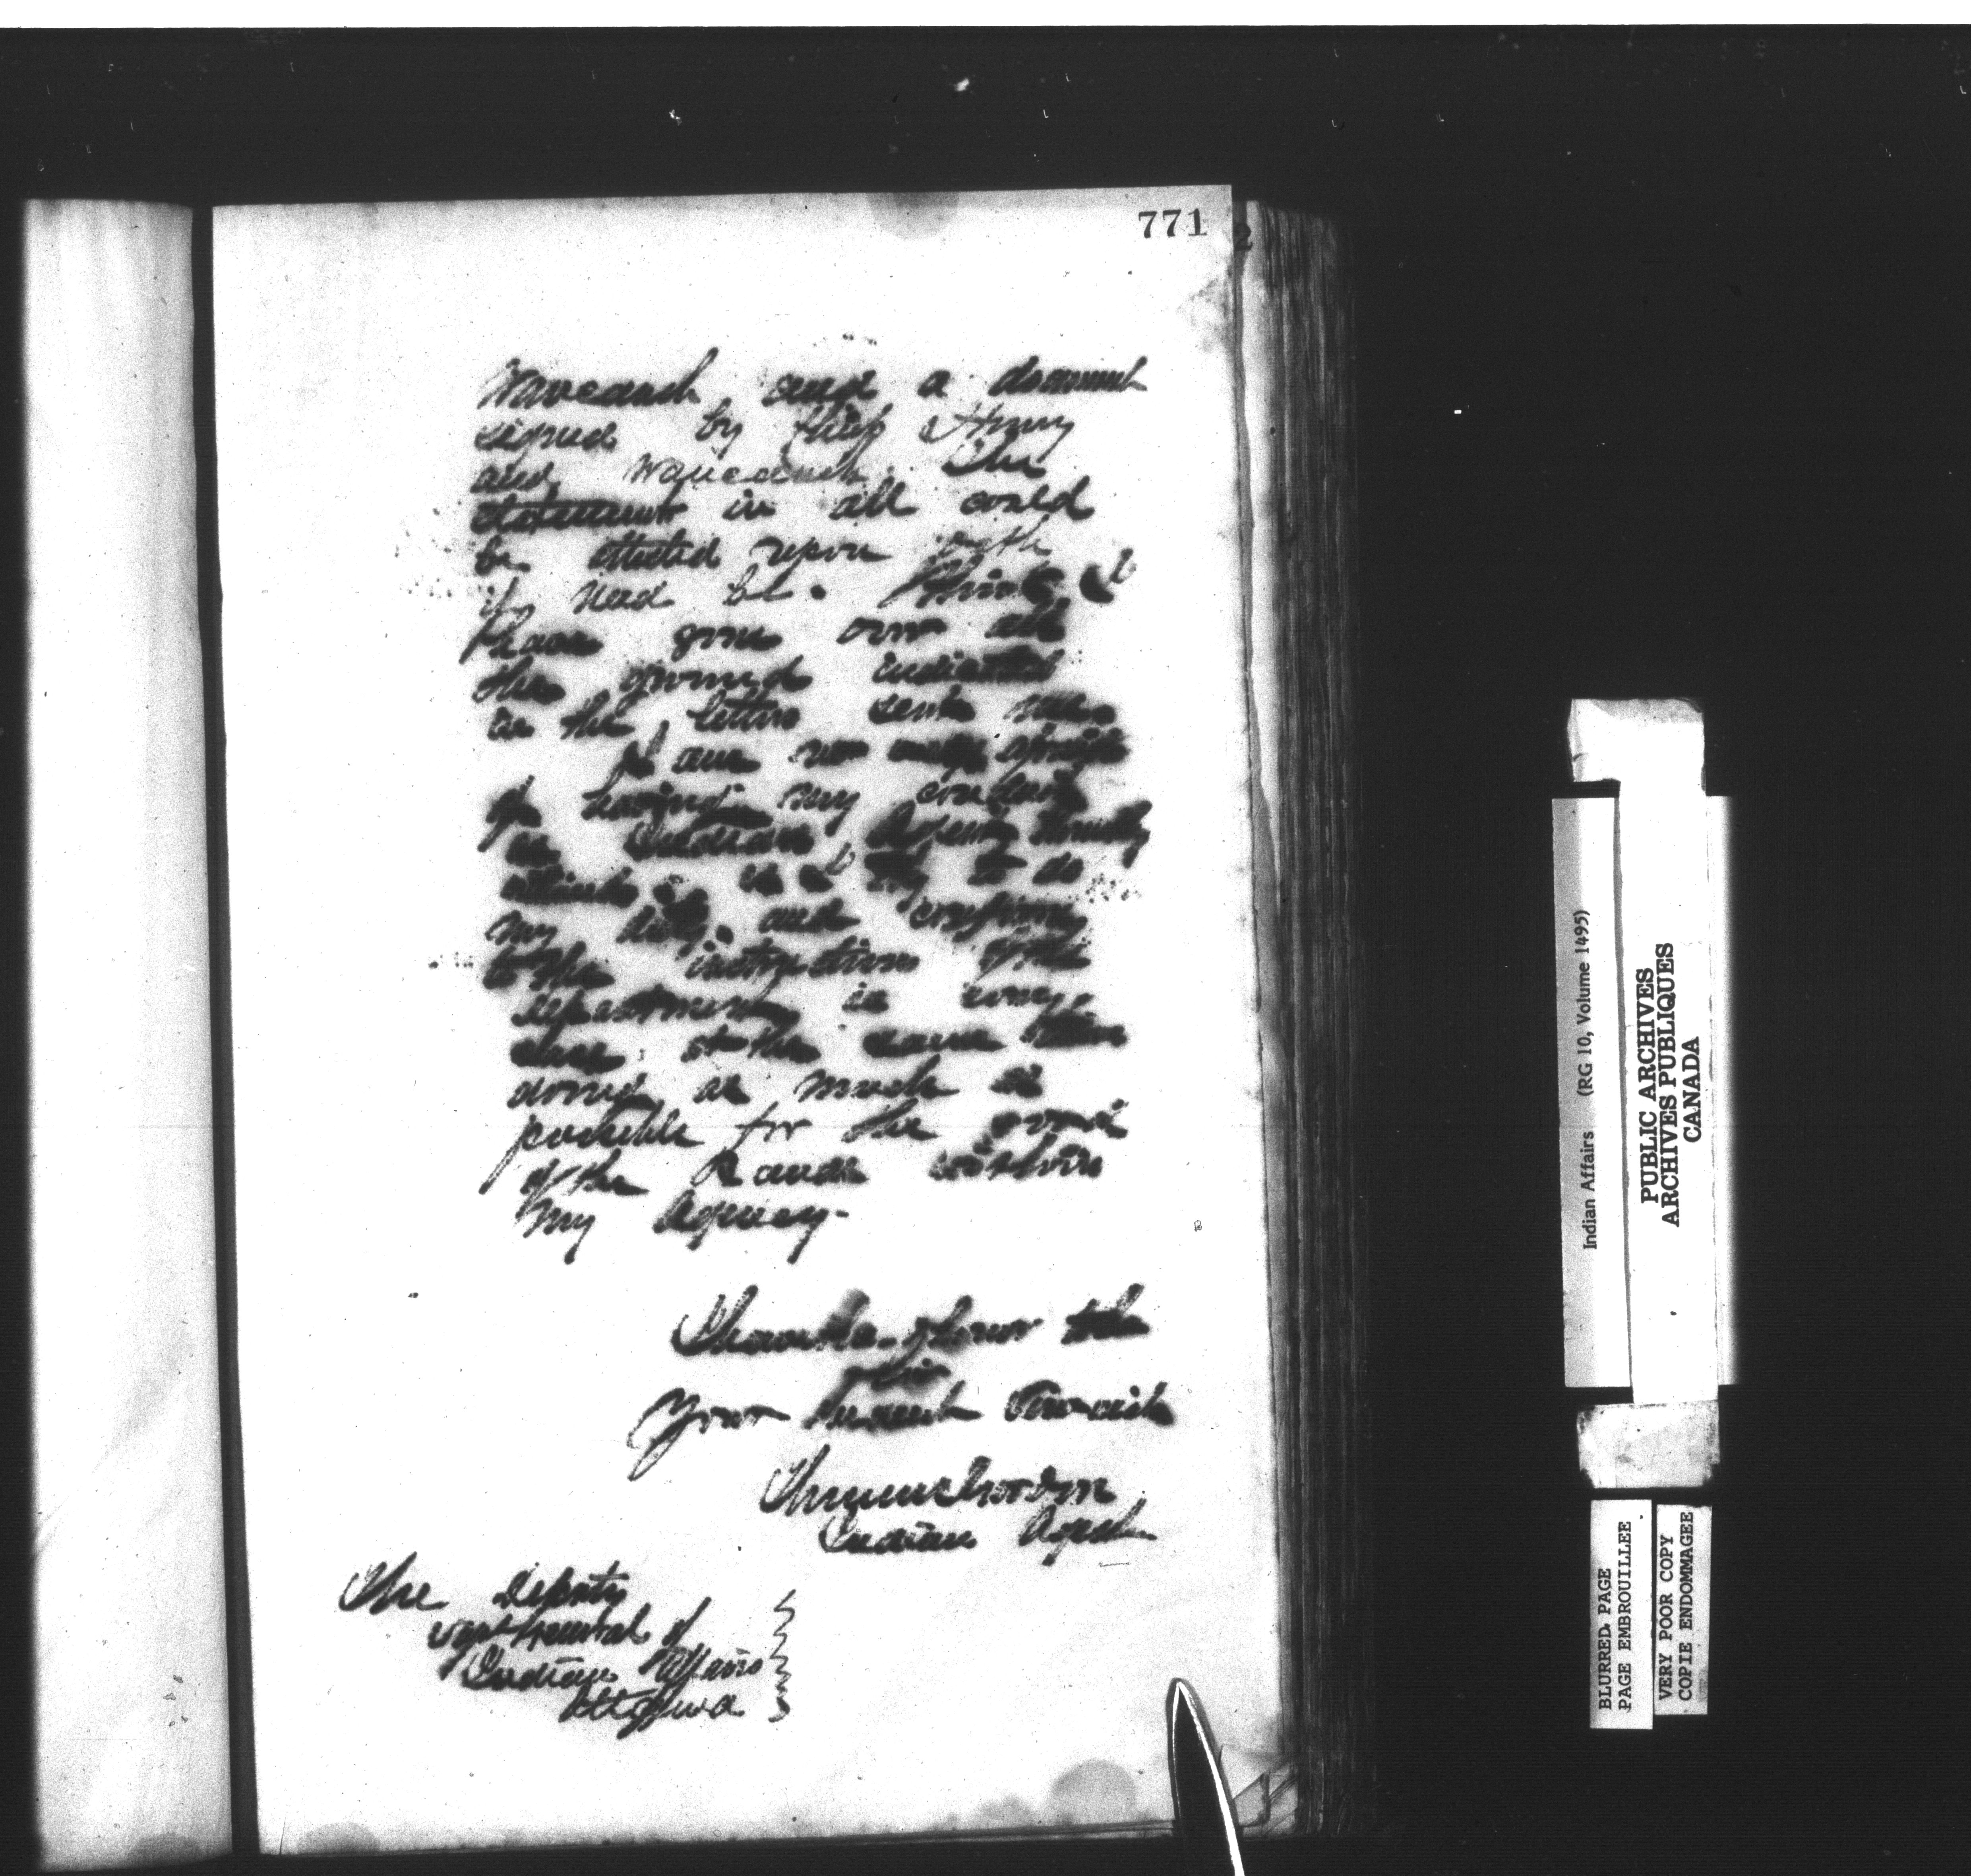 771
2
Waucaush and a document
signed by Chief Henry
and Waucaush. The
statements in all could
be attested upon oath
if need be. I think I
have gone over all
the ground indicated
in the letter sent me.
I am no way afraid
of having my conduct
as Indian Agent
as I to do
my duty and
to the instructions of the
department in every
case at the same time
as much as
possible for the good
of the Bands within
my Agency-
I have the honor to be
Sir
Your Servant
Indian Agent
The Deputy
Supt General of
Indian Affairs
Ottawa
Indian Affairs (RG 10, Volume 1495)
PUBLIC ARCHIVES
ARCHIVES PUBLIQUES
CANADA
BLURRED PAGE
PAGE EMBROUILLEE
VERY POOR COPY
COPIE ENDOMMAGEE